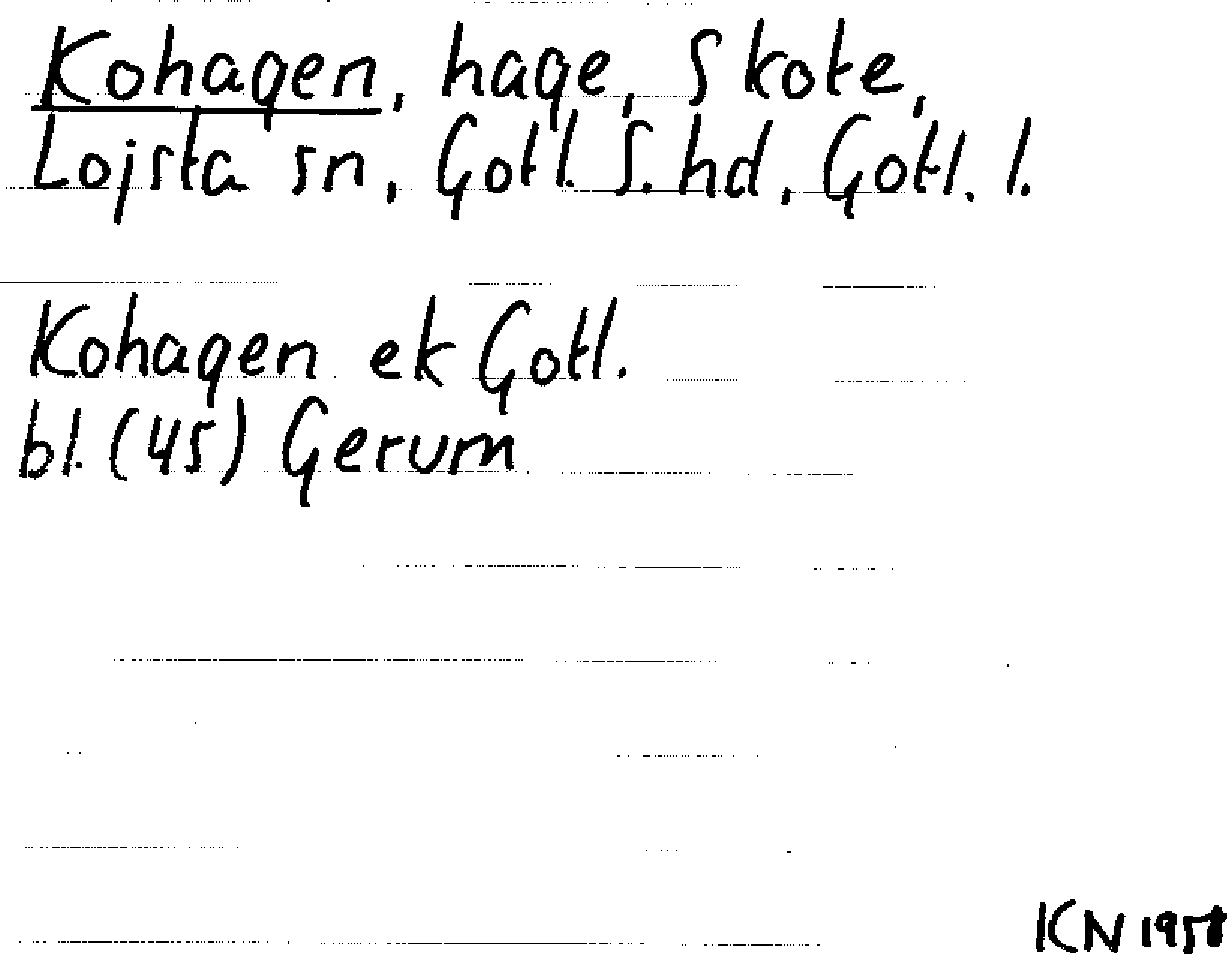 Kohagen, hage, Skote,
Lojsta sn, Gotl. S. hd, Gotl. l.
Kohagen ek Gotl.
bl. (45) Gerum
ICN 1958